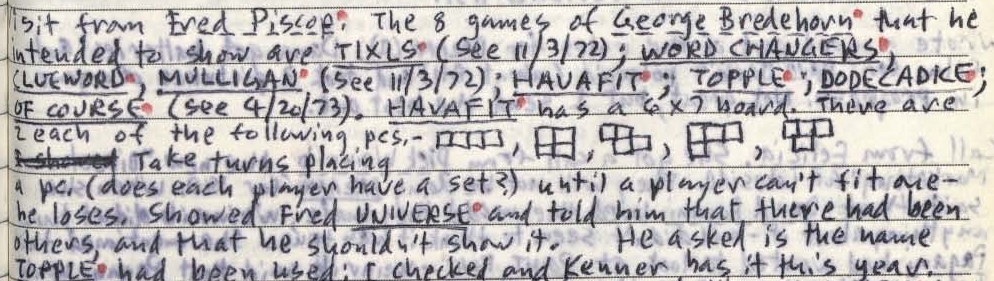 isit from Fred Piscop. The 8 games of George Bredehorn that he
intended to show are TIXLS (See 11/3/72); WORD CHANGERS,
CLUEWORD, MULLIGAN (See 11/3/72); HAVAFIT; TOPPLE; DODECADICE;
OF COURSE (See 4/20/73). HAVAFIT has a 6x7 board. There are
2 each of the following pcs.-
Take turns placing
a pc. (does each player have a set?) until a player can't fit one-
he loses. Showed Fred UNIVERSE and told him that there had been
others, and that he shouldn't show it. He asked is the name
TOPPLE had been used; I checked and Kenner has it this year.